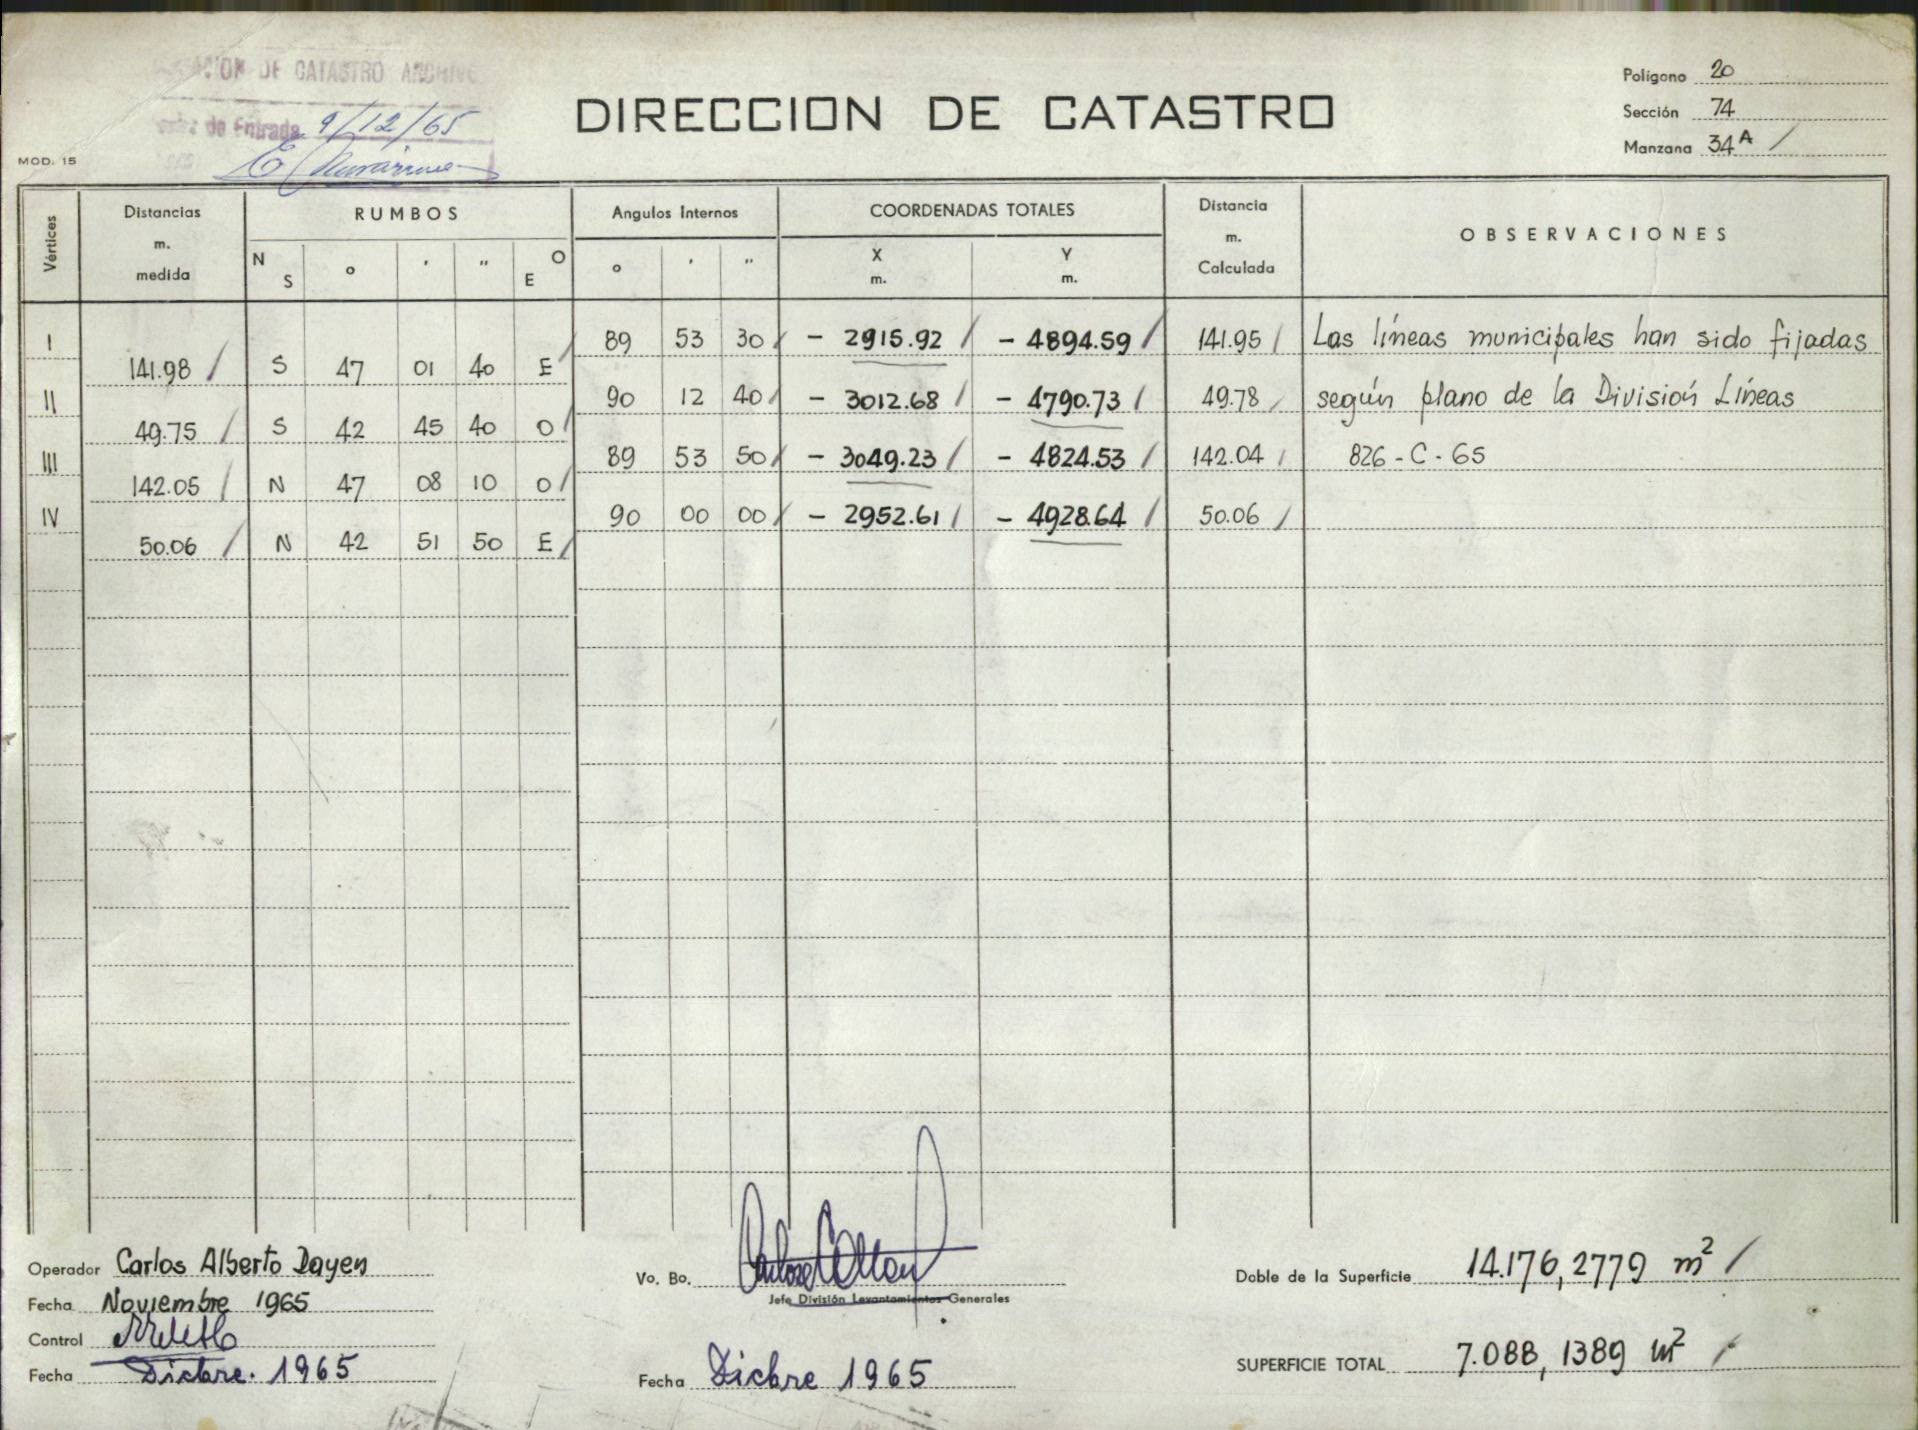 CION DE CATASTRO ARCHIVO
de Entrada 9/12/65
MOD. 15
DIRECCION DE CATASTRO
Polígono 20
Sección 74
Manzana 34A /
Vértices
Distancias m. medida
RUMBOS
N S o ' " O E
Angulos Internos
o ' "
COORDENADAS TOTALES
X m. Y m.
Distancia m. Calculada
OBSERVACIONES
I 89 53 30 / - 2915.92 / - 4894.59 / 141.95 / Las líneas municipales han sido fijadas
141.98 / S 47 01 40 E /
II 90 12 40 / - 3012.68 / - 4790.73 / 49.78 / según plano de la División Líneas
49.75 / S 42 45 40 O /
III 89 53 50 / - 3049.23 / - 4824.53 / 142.04 / 826 - C - 65
142.05 / N 47 08 10 O /
IV 90 00 00 / - 2952.61 / - 4928.64 / 50.06 /
50.06 / N 42 51 50 E /
Operador Carlos Alberto Dayen
Fecha Noviembre 1965
Control
Fecha Dicbre. 1965
Vo. Bo.
Jefe División Levantamientos Generales
Fecha Dicbre 1965
Doble de la Superficie 14.176,2779 m2 /
SUPERFICIE TOTAL 7.088,1389 m2 /